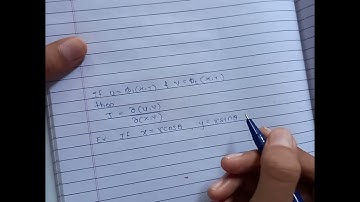 If u = Φ₁(x,y) & v = Φ₂(x,y)
then
J = ∂(u,v)
∂(x,y)
Ex If x = rcosθ y = rsinθ